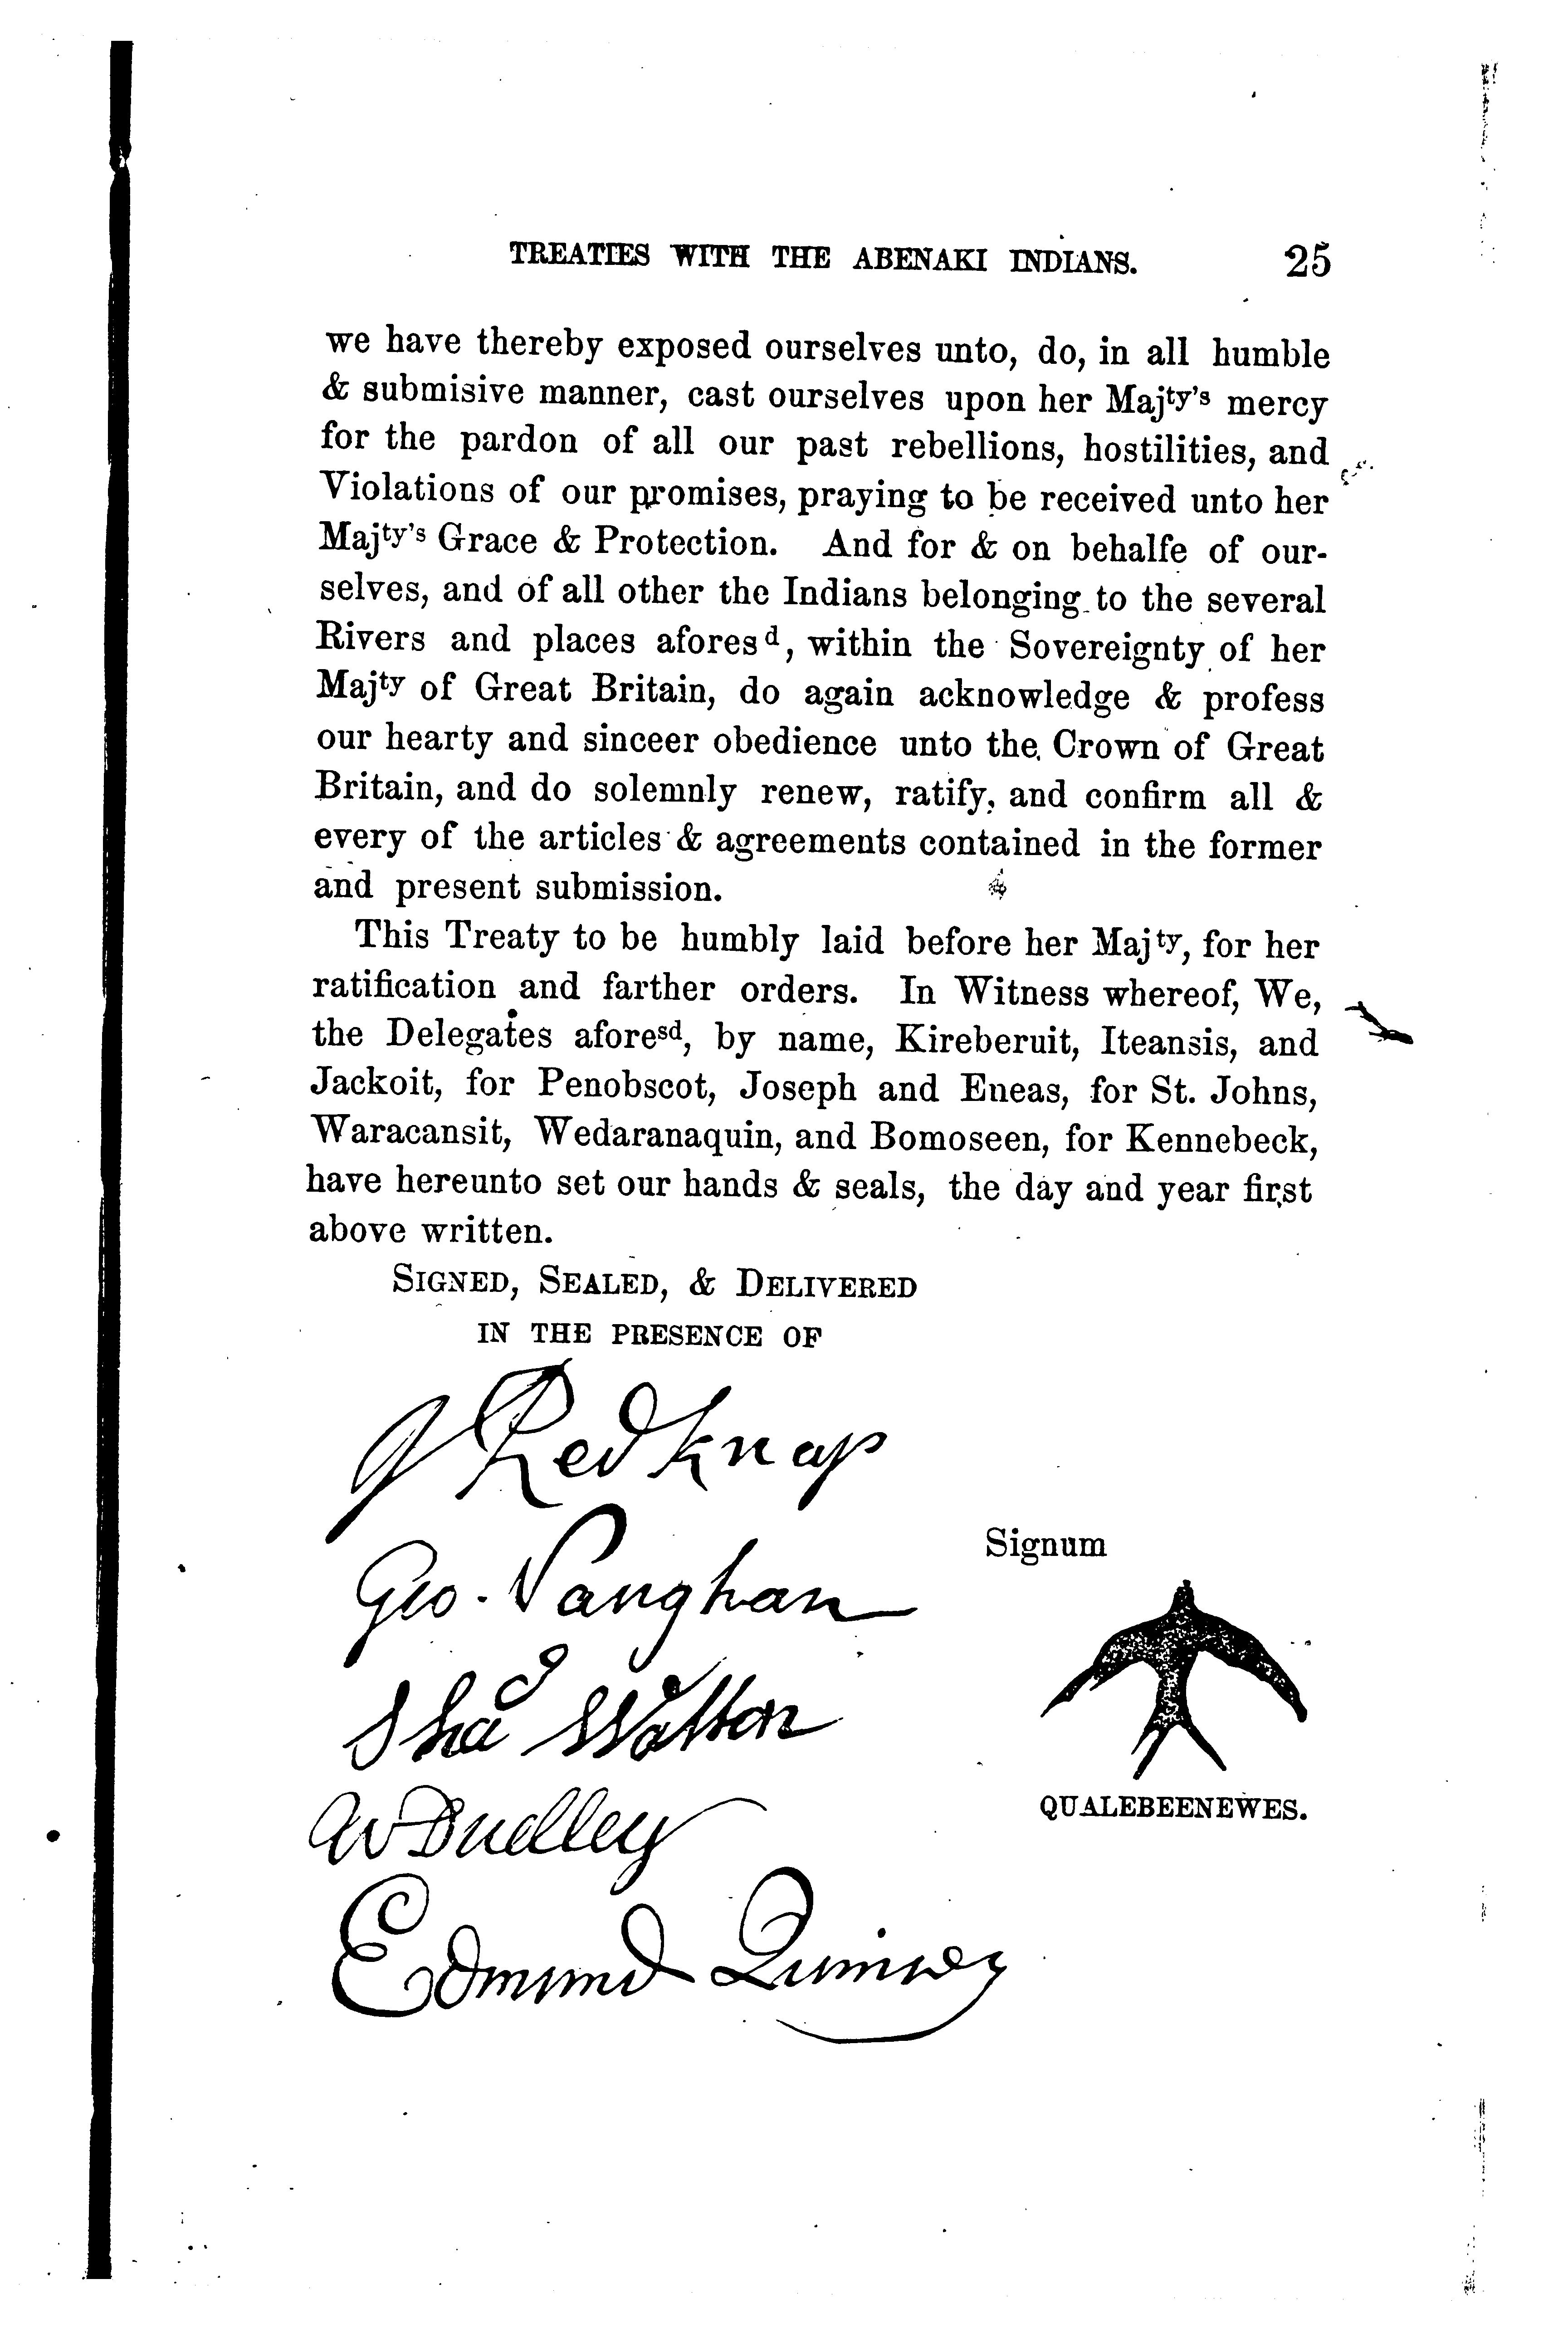 TREATIES WITH THE ABENAKI INDIANS. 25
we have thereby exposed ourselves unto, do, in all humble
& submisive manner, cast ourselves upon her Majty's mercy
for the pardon of all our past rebellions, hostilities, and
Violations of our promises, praying to be received unto her
Majty's Grace & Protection. And for & on behalfe of our-
selves, and of all other the Indians belonging to the several
Rivers and places aforesd, within the Sovereignty of her
Majty of Great Britain, do again acknowledge & profess
our hearty and sinceer obedience unto the Crown of Great
Britain, and do solemnly renew, ratify, and confirm all &
every of the articles & agreements contained in the former
and present submission.
This Treaty to be humbly laid before her Majty, for her
ratification and farther orders. In Witness whereof, We,
the Delegates aforesd, by name, Kireberuit, Iteansis, and
Jackoit, for Penobscot, Joseph and Eneas, for St. Johns,
Waracansit, Wedaranaquin, and Bomoseen, for Kennebeck,
have hereunto set our hands & seals, the day and year first
above written.
SIGNED, SEALED, & DELIVERED
IN THE PRESENCE OF
J Redknap
Geo. Vaughan
Signum
Shad Walton
W Dudley
QUALEBEENEWES.
Edmund Quincey